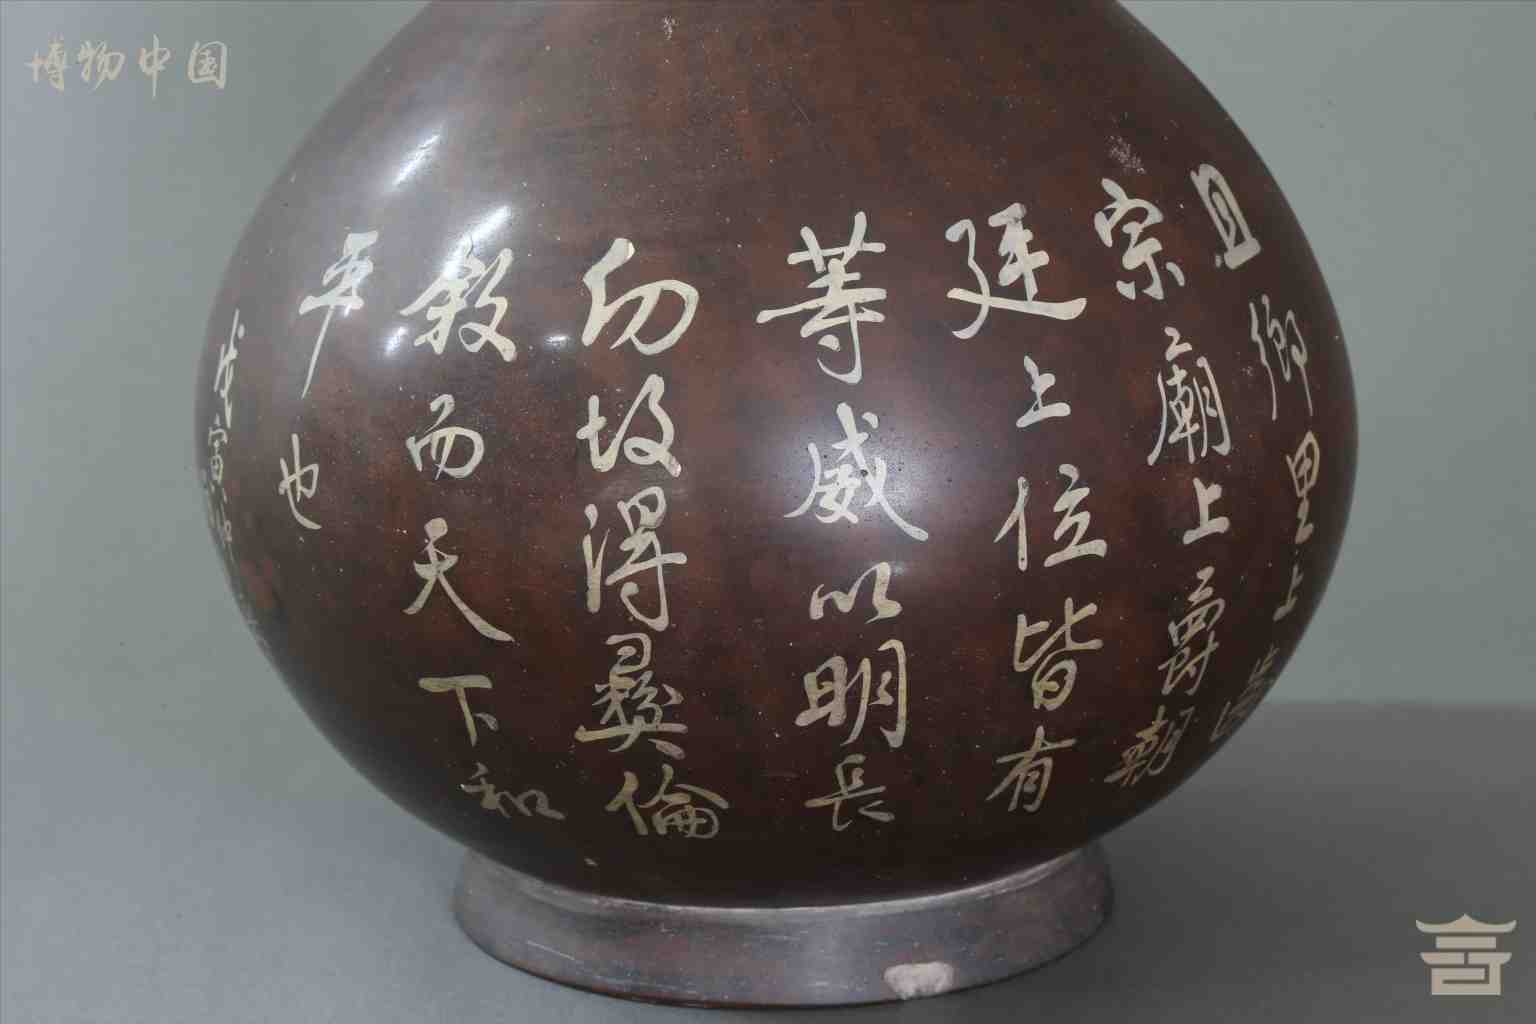 博物中国
且鄉里上
宗廟上爵朝
廷上位皆有
等威以明長
幼故得彛倫
敘而天下和
平也
戊寅